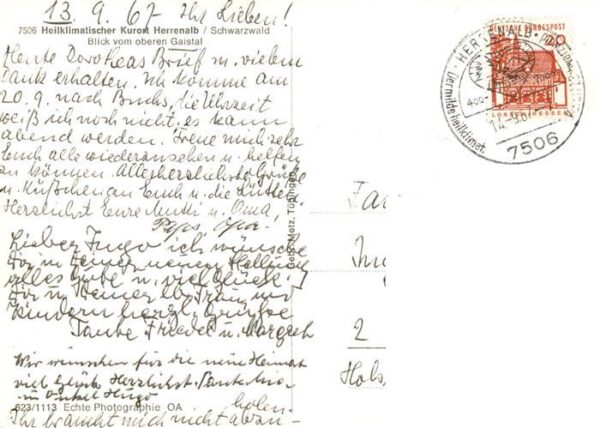 13.9.67 Ihr Lieben!
7506 Heilklimatischer Kurort Herrenalb / Schwarzwald
Blick vom oberen Gaistal
Heute Dorotheas Brief m. vielem
Dank erhalten. Ich komme am
20.9. nach Buchs, die Uhrzeit
weiß ich noch nicht, es kann
abend werden. Freue mich sehr
Euch alle wiederzusehen u. helfen
zu können. Allerherzlichste Grüße
u. Küßchen an Euch u. die
Herzlichst Eure Mutti u. Oma,
Opa.
Lieber Ingo ich wünsche
Dir in Deiner neuen
alles Gute u. viel Glück.
Dir u. Deiner lb. Frau und
Kindern herzl. Grüße
Tante Friedel u. Margreth
Wir wünschen für die neue Heimat
viel Glück Herzlichst Tante
u. Onkel Hugo
623/1113 Echte Photographie OA
Ihr braucht mich nicht abzu-
holen.
Gebr. Metz, Tübingen
DEUTSCHE BUNDESPOST
20
LORSCH/HESSEN
HERRENALB
Der milde heilklimat.
400-
7506
2